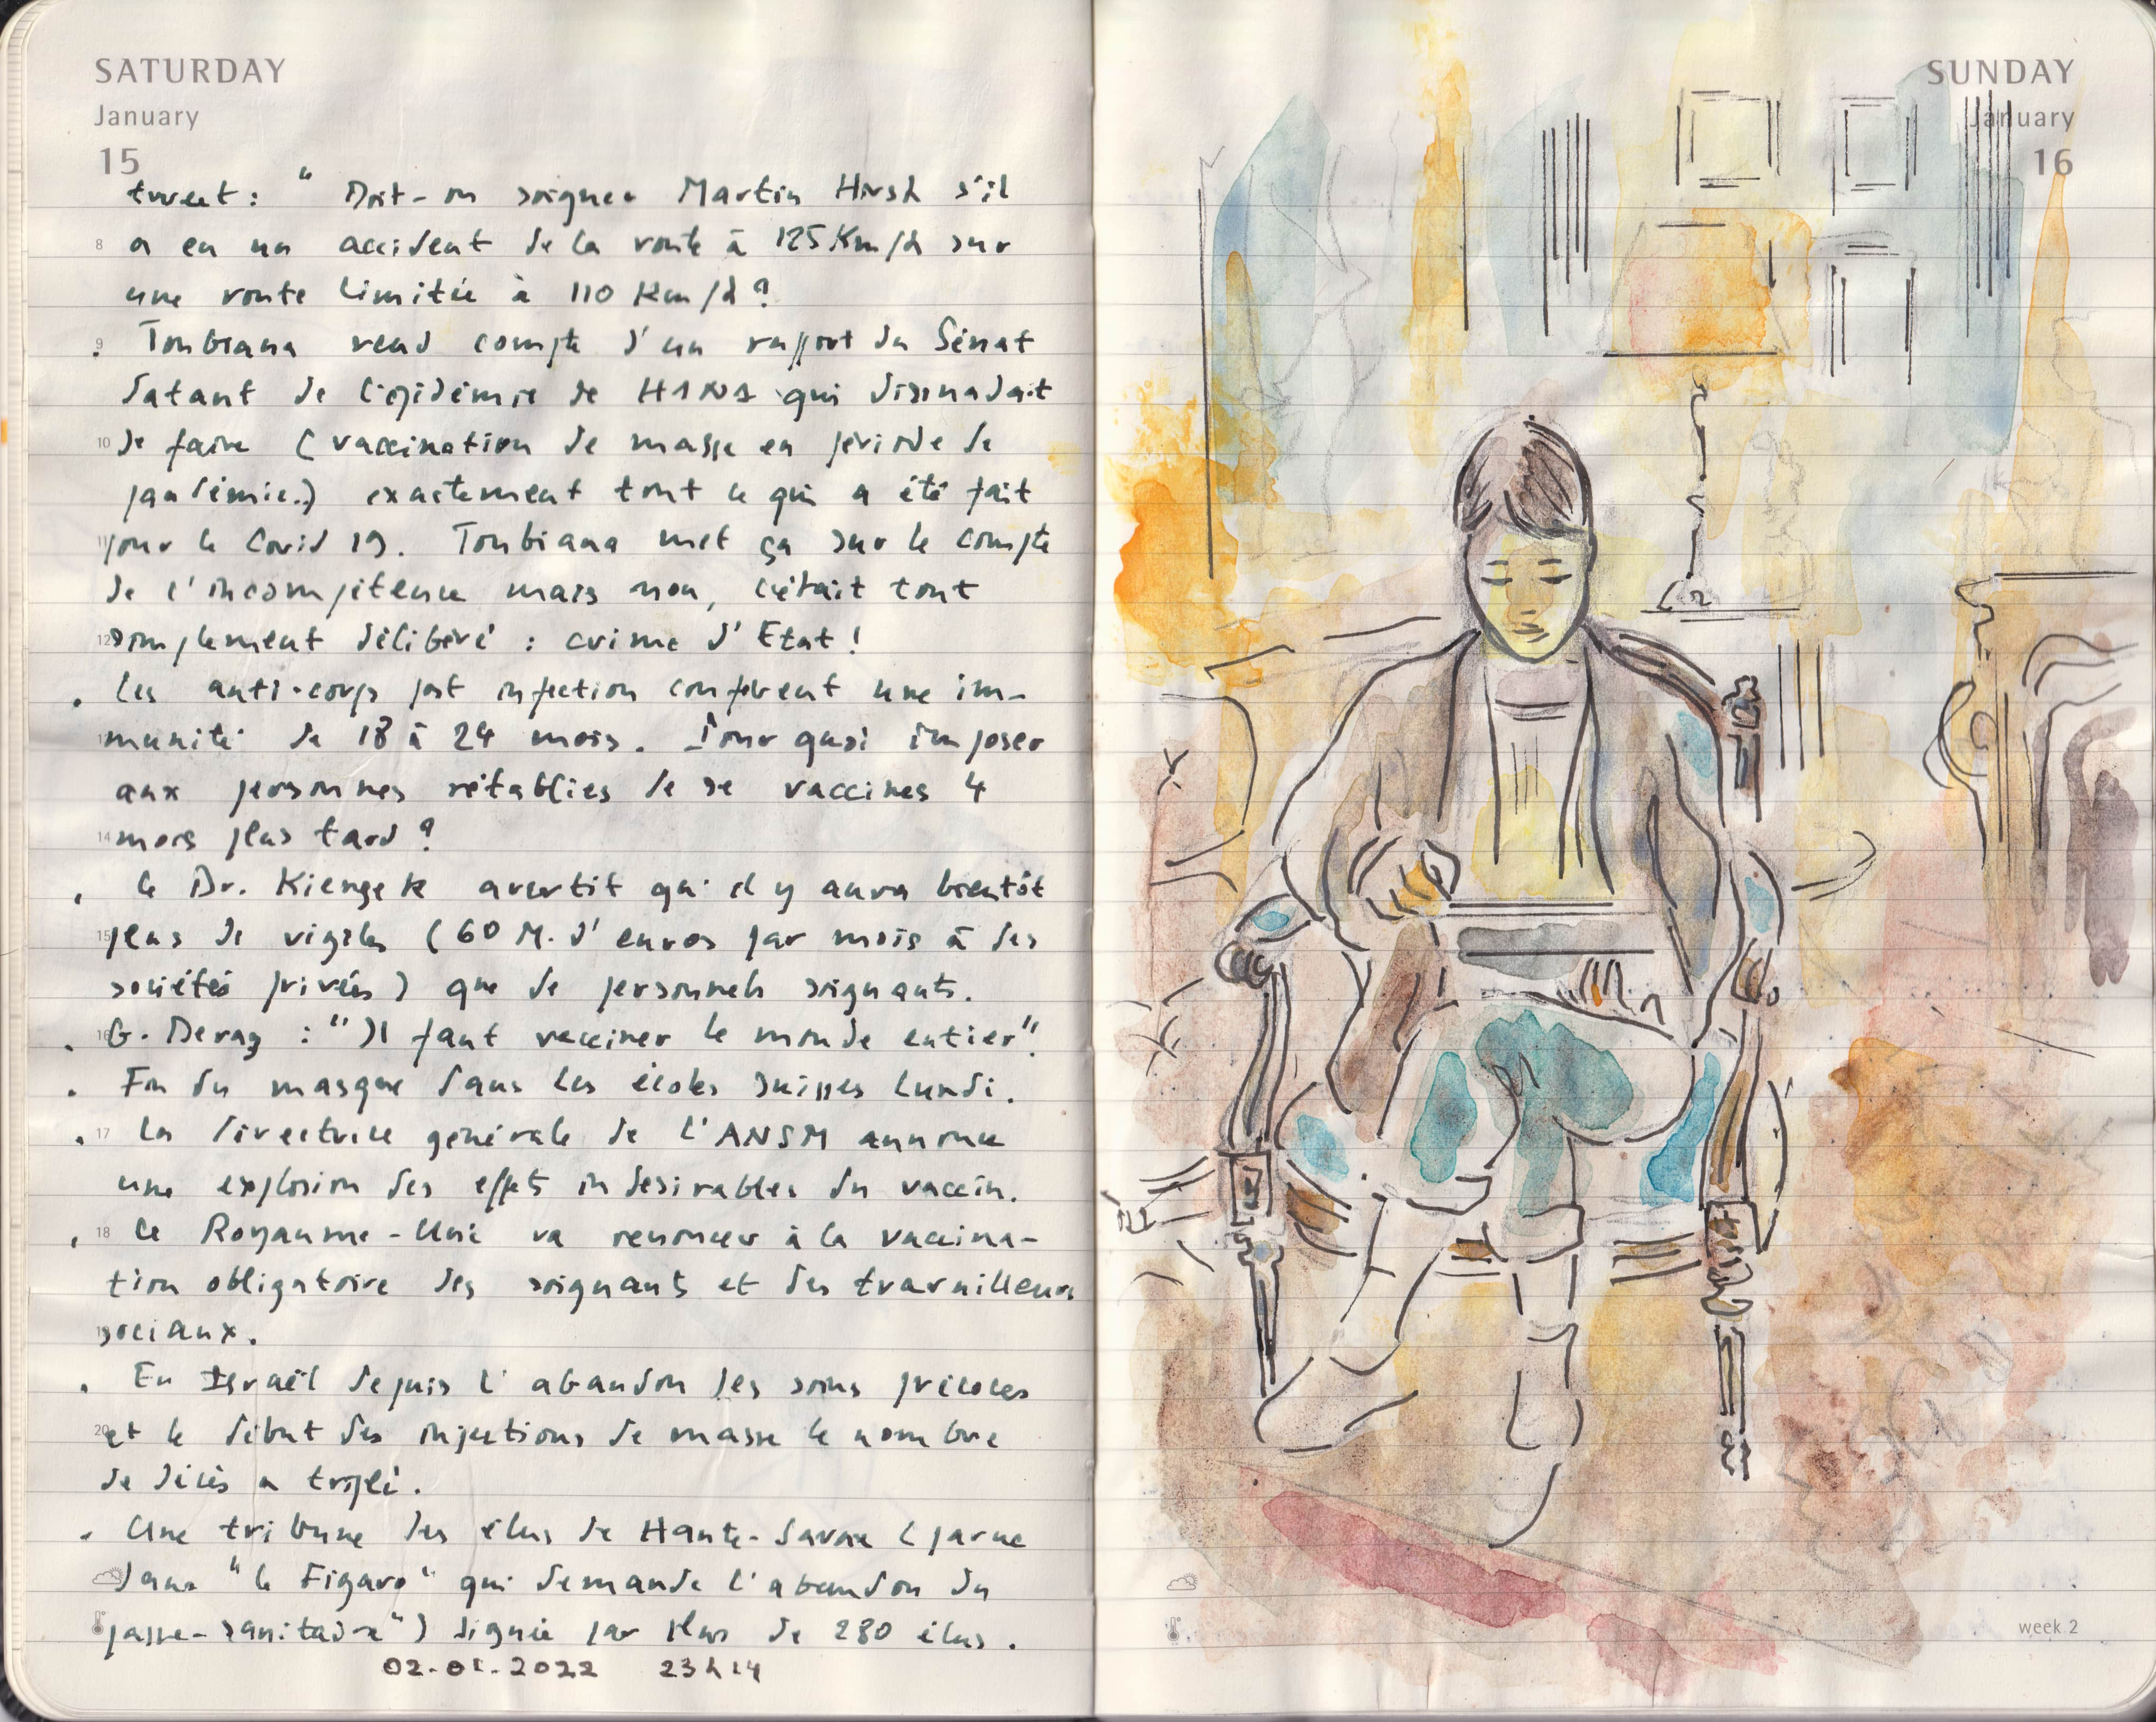 SATURDAY
January
15
tweet : " Doit-on soigner Martin Hirsh s'il
8 a eu un accident de la route à 125 Km/h sur
une route limitée à 110 Km/h ?
9 . Toubiana rend compte d'un rapport du Sénat
datant de l'épidémie de H1N1 qui dissuadait
10 de faire (vaccination de masse en période de
pandémie.) exactement tout ce qui a été fait
11 pour le Covid 19. Toubiana met ça sur le compte
de l'incompétence mais non, c'était tout
12 simplement délibéré : crime d'Etat !
. Les anti-corps post infection confèrent une im-
munité de 18 à 24 mois. Pourquoi imposer
aux personnes rétablies de se vacciner 4
14 mois plus tard ?
. le Dr. Kierzek avertit qu'il y aura bientôt
15 plus de vigiles (60 M. d'euros par mois à des
sociétés privées) que de personnels soignants.
16 . G. Deray : " Il faut vacciner le monde entier".
. Fin du masque dans les écoles suisses lundi.
17 . La directrice générale de l'ANSM annonce
une explosion des effets indésirables du vaccin.
18 . Le Royaume-Uni va renoncer à la vaccina-
tion obligatoire des soignants et des travailleurs
19 sociaux.
. En Israël depuis l'abandon des soins précoces
20 et le début des injections de masse le nombre
de décès a triplé.
. Une tribune des élus de Haute-Savoie (parue
dans "le Figaro" qui demande l'abandon du
passe-sanitaire") signée par plus de 280 élus.
02.02.2022 23h14
SUNDAY
January
16
week 2